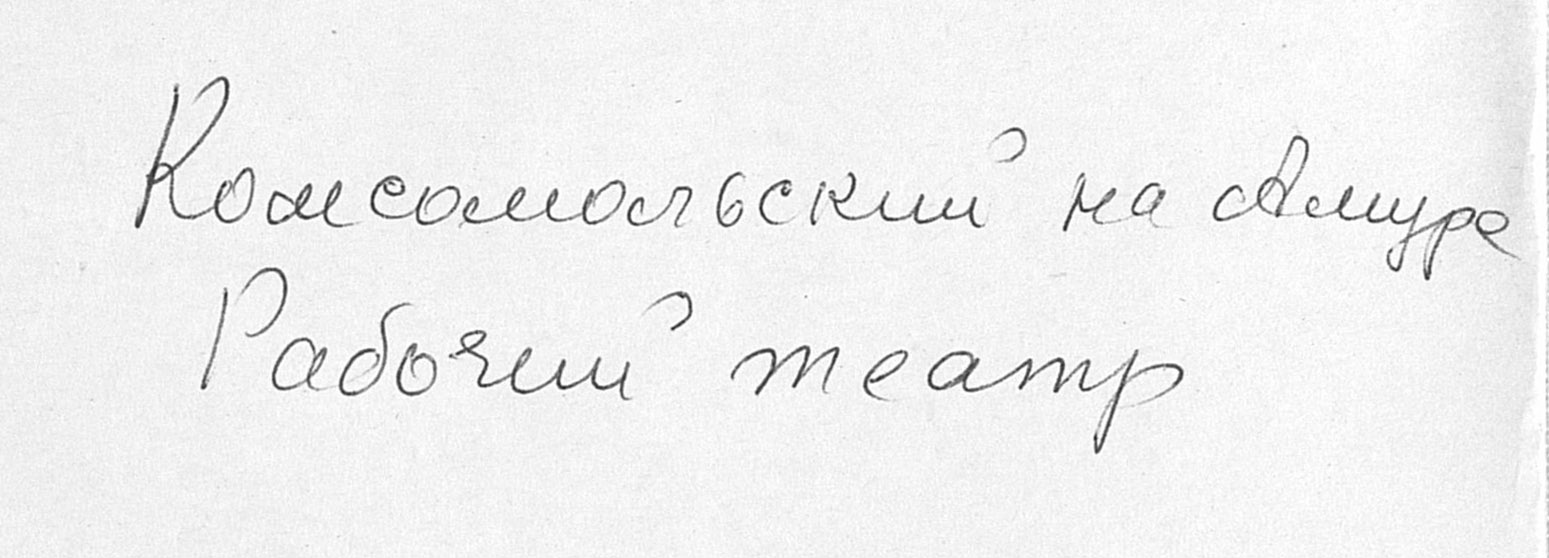 Комсомольский на Амуре
Рабочий театр